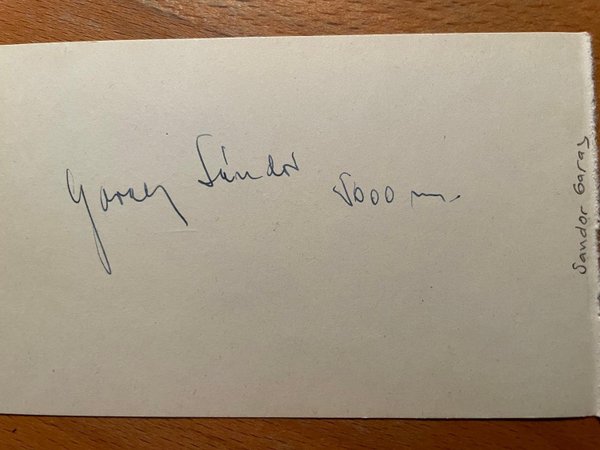 Garay Sándor 5000 m.
Sandor Garay